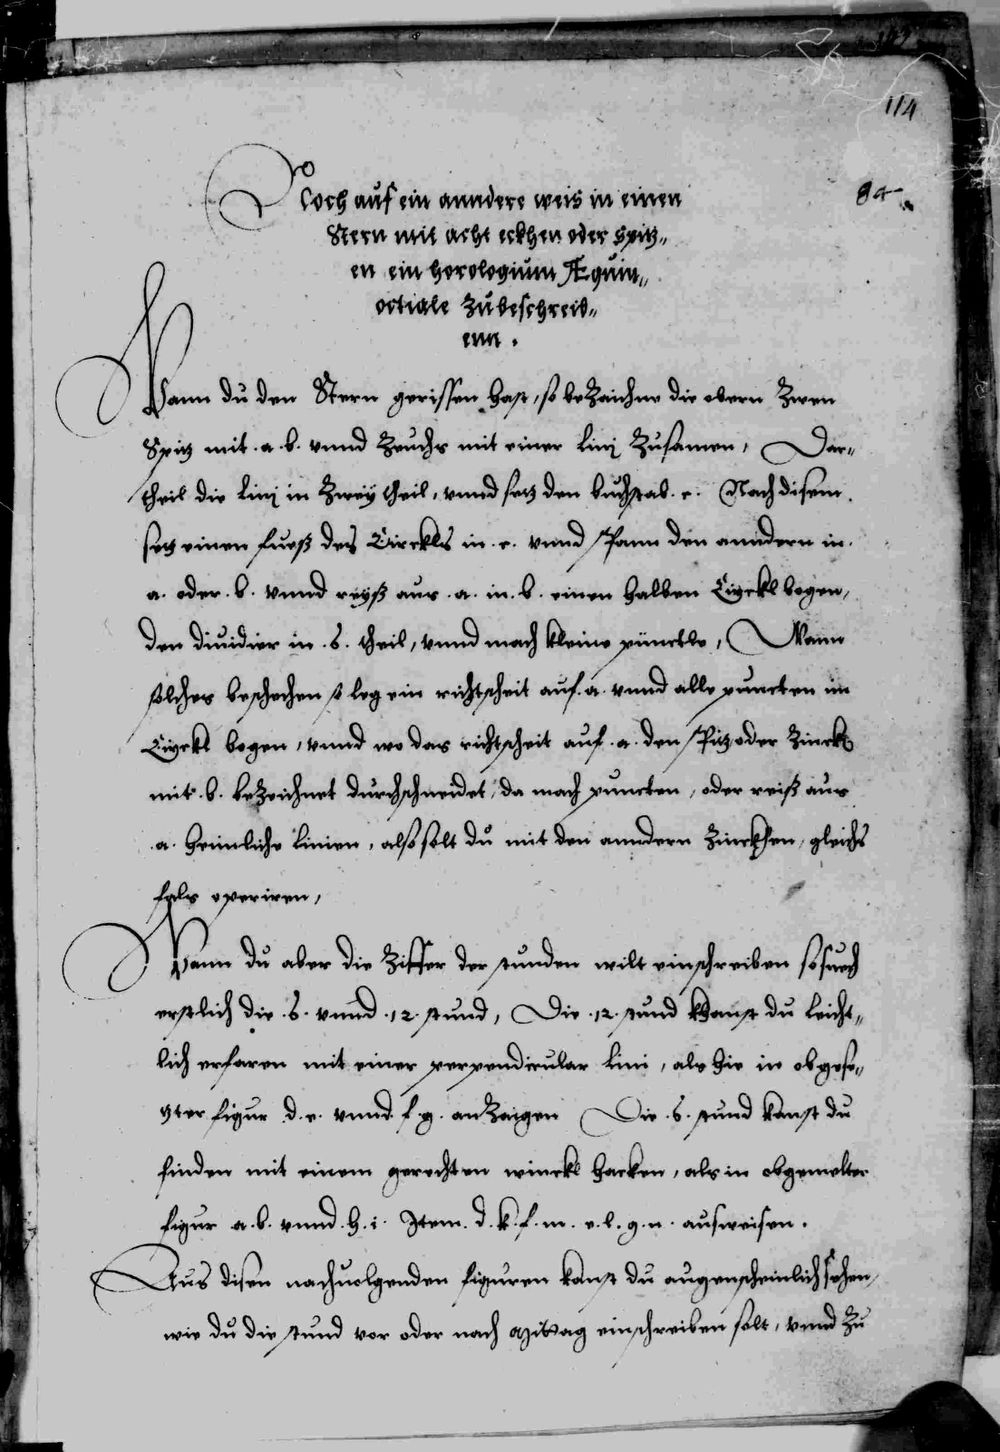 114
84
Noch auf ein anndere weis in einen
Stern mit acht eckhen oder Spitz„
en ein horologium Æquin„
octiale Zubeschreib„
enn .
Wann du den Stern gerissen hast, so beZaichne die obern Zwen
Spitz mit .a.b. vnnd Zeuchs mit einer Linj Zusamen, Dar„
theil die Linj in Zweÿ theil, vnnd setz den buchstab .c. Nach disem
setz einen fueß des Circkls in .c. vnnd spann den anndern in
a. oder .b. vnnd reÿß aus .a. in .b. einen halben Circkl bogen,
den diuidier in .6. theil, vnnd mach kleine pünctle, Wann
solches beschechen so leg ein richtscheit auf .a. vnnd alle puncten im
Circkl bogen, vnnd wo das richtscheit auf .a. den spitz oder Zinckh
mit .b. beZeichnet durchschneidet, da mach puncten, oder reiß aus
.a. heimliche Linien, also solt du mit den anndern Zinckhen, gleichs
fals operiren,
Wann du aber die Ziffer der stunden wilt einschreiben so such
erstlich die .6. vnnd .12. stund, Die .12. stund khanst du leicht„
lich erfaren mit einer perpendicular Lini, als hie in obgese„
zter figur .d.e. vnnd f.g. anZaigen Die .6. stund kanst du
finden mit einem gerechten winckl hacken, als in obgemelter
figur a.b. vnnd .h.i. Item .d.k.f.m. e.l.g.n. ausweisen.
Aus disen nachuolgenden figuren kanst du augenscheinlich sehen,
wie du die stund vor oder nach mittag einschreiben solt, vnnd Zu